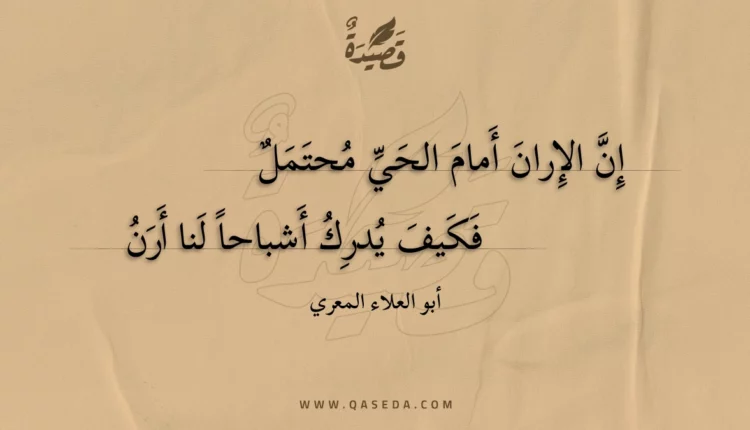 قَصِيْدَةٌ
إِنَّ الإِرانَ أَمامَ الحَيِّ مُحتَمَلٌ
فَكَيفَ يُدرِكُ أَشباحاً لَنا أَرَنُ
أبو العلاء المعري
WWW.QASEDA.COM